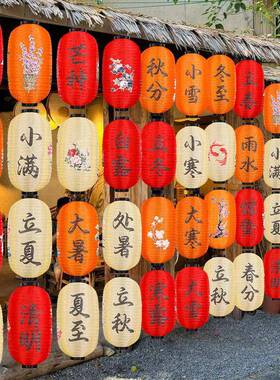 芒种
秋分
小雪
冬至
立春
小满
白露
立冬
小寒
雨水
谷雨
立夏
大暑
处暑
大寒
清明
夏至
立秋
寒露
大雪
立秋
春分